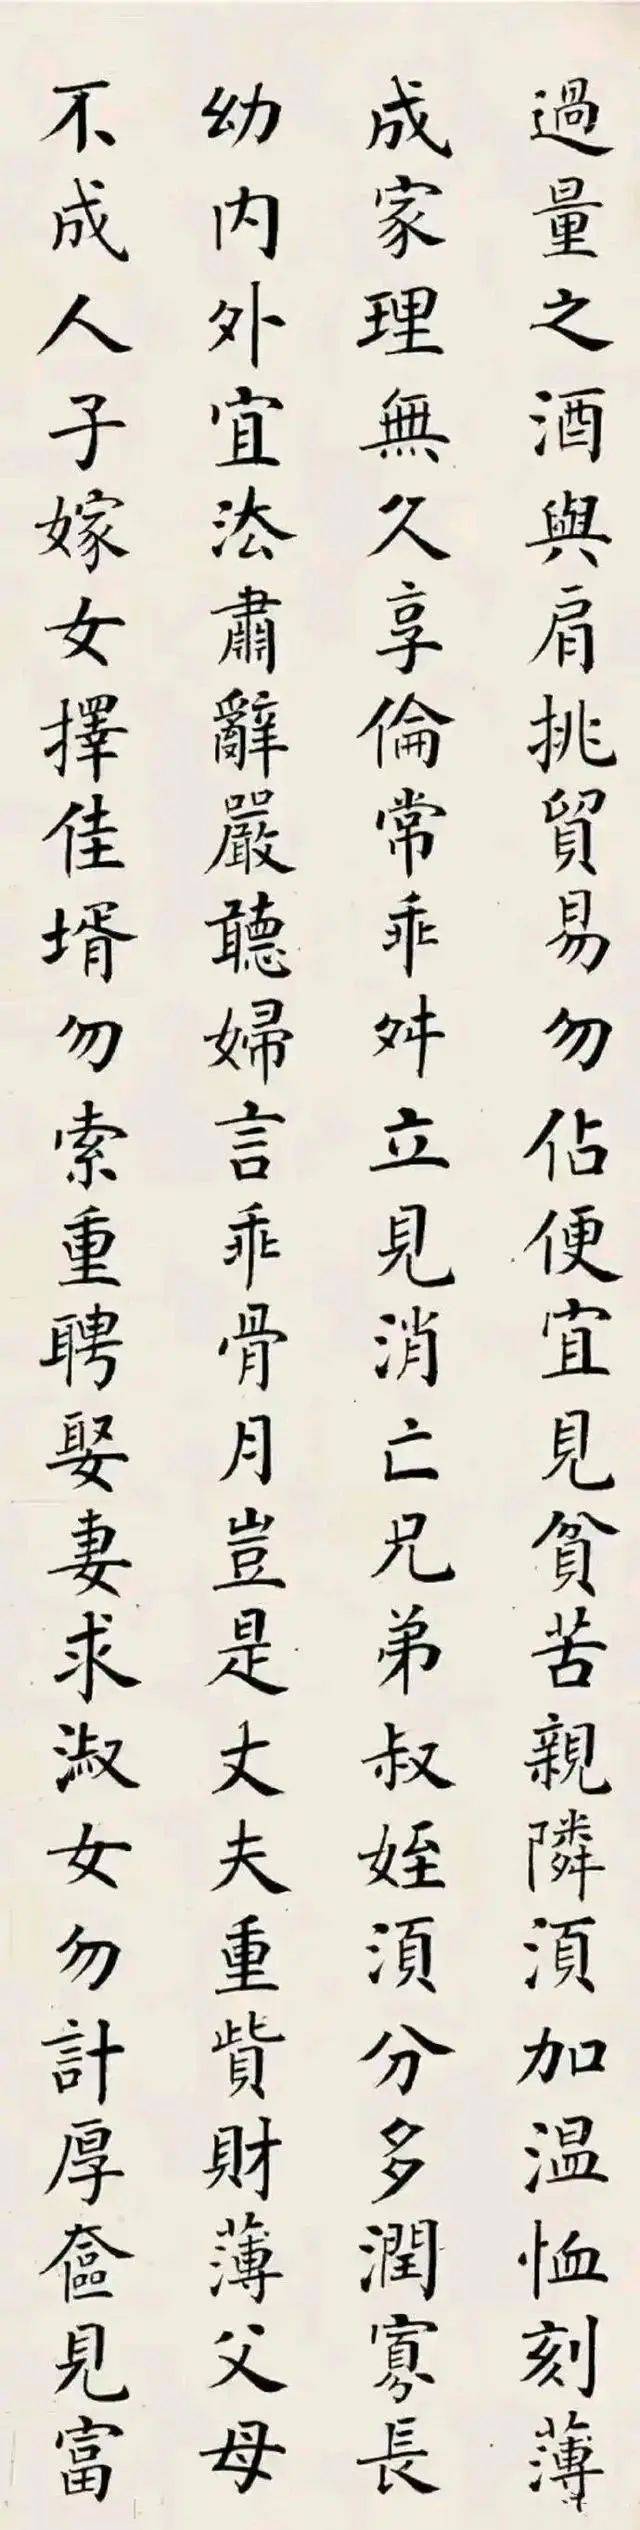 過量之酒與肩挑貿易勿佔便宜見貧苦親隣須加温恤刻薄
成家理無久享倫常乖舛立見消亡兄弟叔姪須分多潤寡長
幼内外宜法肅辭嚴聽婦言乖骨月豈是丈夫重貲財薄父母
不成人子嫁女擇佳壻勿索重聘娶妻求淑女勿計厚奩見富